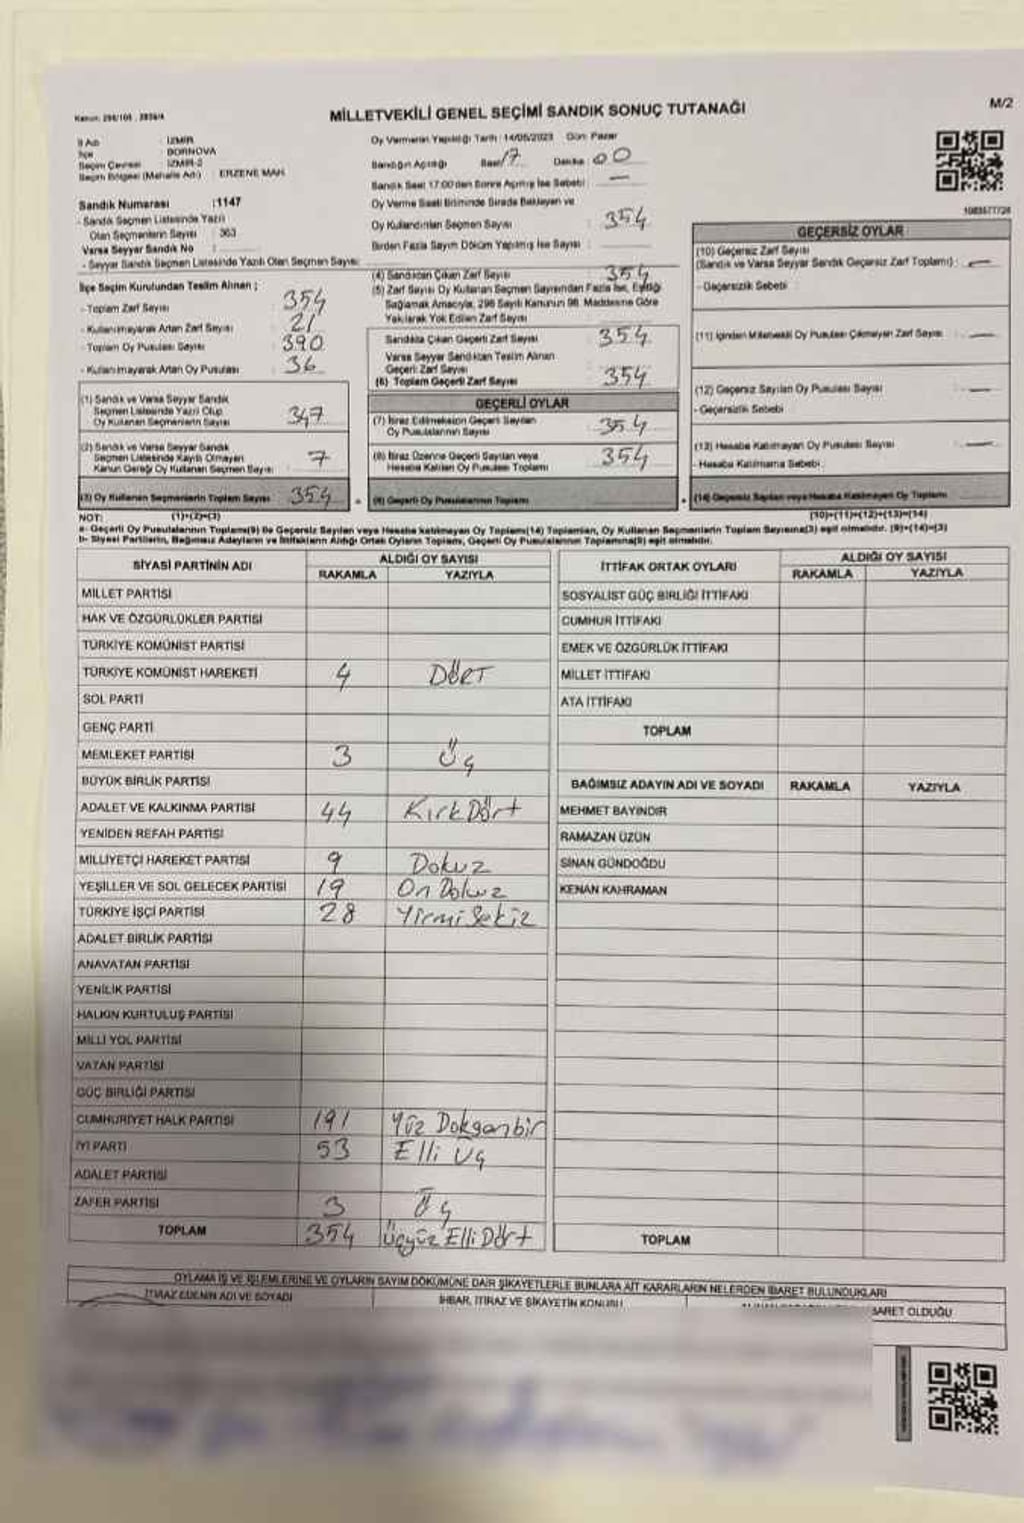 Kanun: 298/105 , 2839/4
MİLLETVEKİLİ GENEL SEÇİMİ SANDIK SONUÇ TUTANAĞI
M/2
İl Adı : İZMİR
İlçe : BORNOVA
Seçim Çevresi : İZMİR-2
Seçim Bölgesi (Mahalle Adı) : ERZENE MAH.
Oy Vermenin Yapıldığı Tarih : 14/05/2023 Gün: Pazar
Sandığın Açıldığı Saat 17 Dakika : 00
Sandık Saat 17:00'den Sonra Açılmış İse Sebebi : —
Oy Verme Saati Bitiminde Sırada Bekleyen ve
Oy Kullandırılan Seçmen Sayısı : 354
Birden Fazla Sayım Döküm Yapılmış İse Sayısı :
Sandık Numarası :1147
- Sandık Seçmen Listesinde Yazılı
Olan Seçmenlerin Sayısı : 363
Varsa Seyyar Sandık No :
- Seyyar Sandık Seçmen Listesinde Yazılı Olan Seçmen Sayısı:
İlçe Seçim Kurulundan Teslim Alınan ;
- Toplam Zarf Sayısı : 354
- Kullanılmayarak Artan Zarf Sayısı : 21
- Toplam Oy Pusulası Sayısı : 390
- Kullanılmayarak Artan Oy Pusulası : 36
(1) Sandık ve Varsa Seyyar Sandık
Seçmen Listesinde Yazılı Olup
Oy Kullanan Seçmenlerin Sayısı : 347
(2) Sandık ve Varsa Seyyar Sandık
Seçmen Listesinde Kayıtlı Olmayan
Kanun Gereği Oy Kullanan Seçmen Sayısı : 7
(3) Oy Kullanan Seçmenlerin Toplam Sayısı 354
(4) Sandıktan Çıkan Zarf Sayısı : 354
(5) Zarf Sayısı Oy Kullanan Seçmen Sayısından Fazla İse, Eşitliği
Sağlamak Amacıyla, 298 Sayılı Kanunun 98. Maddesine Göre
Yakılarak Yok Edilen Zarf Sayısı :
Sandıkta Çıkan Geçerli Zarf Sayısı : 354
Varsa Seyyar Sandıktan Teslim Alınan
Geçerli Zarf Sayısı
(6) Toplam Geçerli Zarf Sayısı : 354
GEÇERLİ OYLAR
(7) İtiraz Edilmeksizin Geçerli Sayılan
Oy Pusulalarının Sayısı : 354
(8) İtiraz Üzerine Geçerli Sayılan veya
Hesaba Katılan Oy Pusulası Toplamı : 354
(9) Geçerli Oy Pusulalarının Toplamı
1083577726
GEÇERSİZ OYLAR
(10) Geçersiz Zarf Sayısı
(Sandık ve Varsa Seyyar Sandık Geçersiz Zarf Toplamı) : —
- Geçersizlik Sebebi :
(11) İçinden Milletvekili Oy Pusulası Çıkmayan Zarf Sayısı : —
(12) Geçersiz Sayılan Oy Pusulası Sayısı : —
- Geçersizlik Sebebi :
(13) Hesaba Katılmayan Oy Pusulası Sayısı : —
- Hesaba Katılmama Sebebi :
(14) Geçersiz Sayılan veya Hesaba Katılmayan Oy Toplamı
NOT: (1)+(2)=(3)
(10)+(11)+(12)+(13)=(14)
a- Geçerli Oy Pusulalarının Toplamı(9) ile Geçersiz Sayılan veya Hesaba katılmayan Oy Toplamı(14) Toplamları, Oy Kullanan Seçmenlerin Toplam Sayısına(3) eşit olmalıdır. (9)+(14)=(3)
b- Siyasi Partilerin, Bağımsız Adayların ve İttifakların Aldığı Ortak Oyların Toplamı, Geçerli Oy Pusulalarının Toplamına(9) eşit olmalıdır.
SİYASİ PARTİNİN ADI
ALDIĞI OY SAYISI
RAKAMLA YAZIYLA
MİLLET PARTİSİ
HAK VE ÖZGÜRLÜKLER PARTİSİ
TÜRKİYE KOMÜNİST PARTİSİ
TÜRKİYE KOMÜNİST HAREKETİ 4 DÖRT
SOL PARTİ
GENÇ PARTİ
MEMLEKET PARTİSİ 3 Üç
BÜYÜK BİRLİK PARTİSİ
ADALET VE KALKINMA PARTİSİ 44 Kırk Dört
YENİDEN REFAH PARTİSİ
MİLLİYETÇİ HAREKET PARTİSİ 9 Dokuz
YEŞİLLER VE SOL GELECEK PARTİSİ 19 On Dokuz
TÜRKİYE İŞÇİ PARTİSİ 28 Yirmi Sekiz
ADALET BİRLİK PARTİSİ
ANAVATAN PARTİSİ
YENİLİK PARTİSİ
HALKIN KURTULUŞ PARTİSİ
MİLLİ YOL PARTİSİ
VATAN PARTİSİ
GÜÇ BİRLİĞİ PARTİSİ
CUMHURİYET HALK PARTİSİ 191 Yüz Doksanbir
İYİ PARTİ 53 Elli Üç
ADALET PARTİSİ
ZAFER PARTİSİ 3 Üç
TOPLAM 354 Üçyüz Elli Dört
İTTİFAK ORTAK OYLARI
ALDIĞI OY SAYISI
RAKAMLA YAZIYLA
SOSYALİST GÜÇ BİRLİĞİ İTTİFAKI
CUMHUR İTTİFAKI
EMEK VE ÖZGÜRLÜK İTTİFAKI
MİLLET İTTİFAKI
ATA İTTİFAKI
TOPLAM
BAĞIMSIZ ADAYIN ADI VE SOYADI RAKAMLA YAZIYLA
MEHMET BAYINDIR
RAMAZAN ÜZÜN
SİNAN GÜNDOĞDU
KENAN KAHRAMAN
TOPLAM
OYLAMA İŞ VE İŞLEMLERİNE VE OYLARIN SAYIM DÖKÜMÜNE DAİR ŞİKAYETLERLE BUNLARA AİT KARARLARIN NELERDEN İBARET BULUNDUKLARI
İTİRAZ EDENİN ADI VE SOYADI
İHBAR, İTİRAZ VE ŞİKAYETİN KONUSU
OLDUĞU